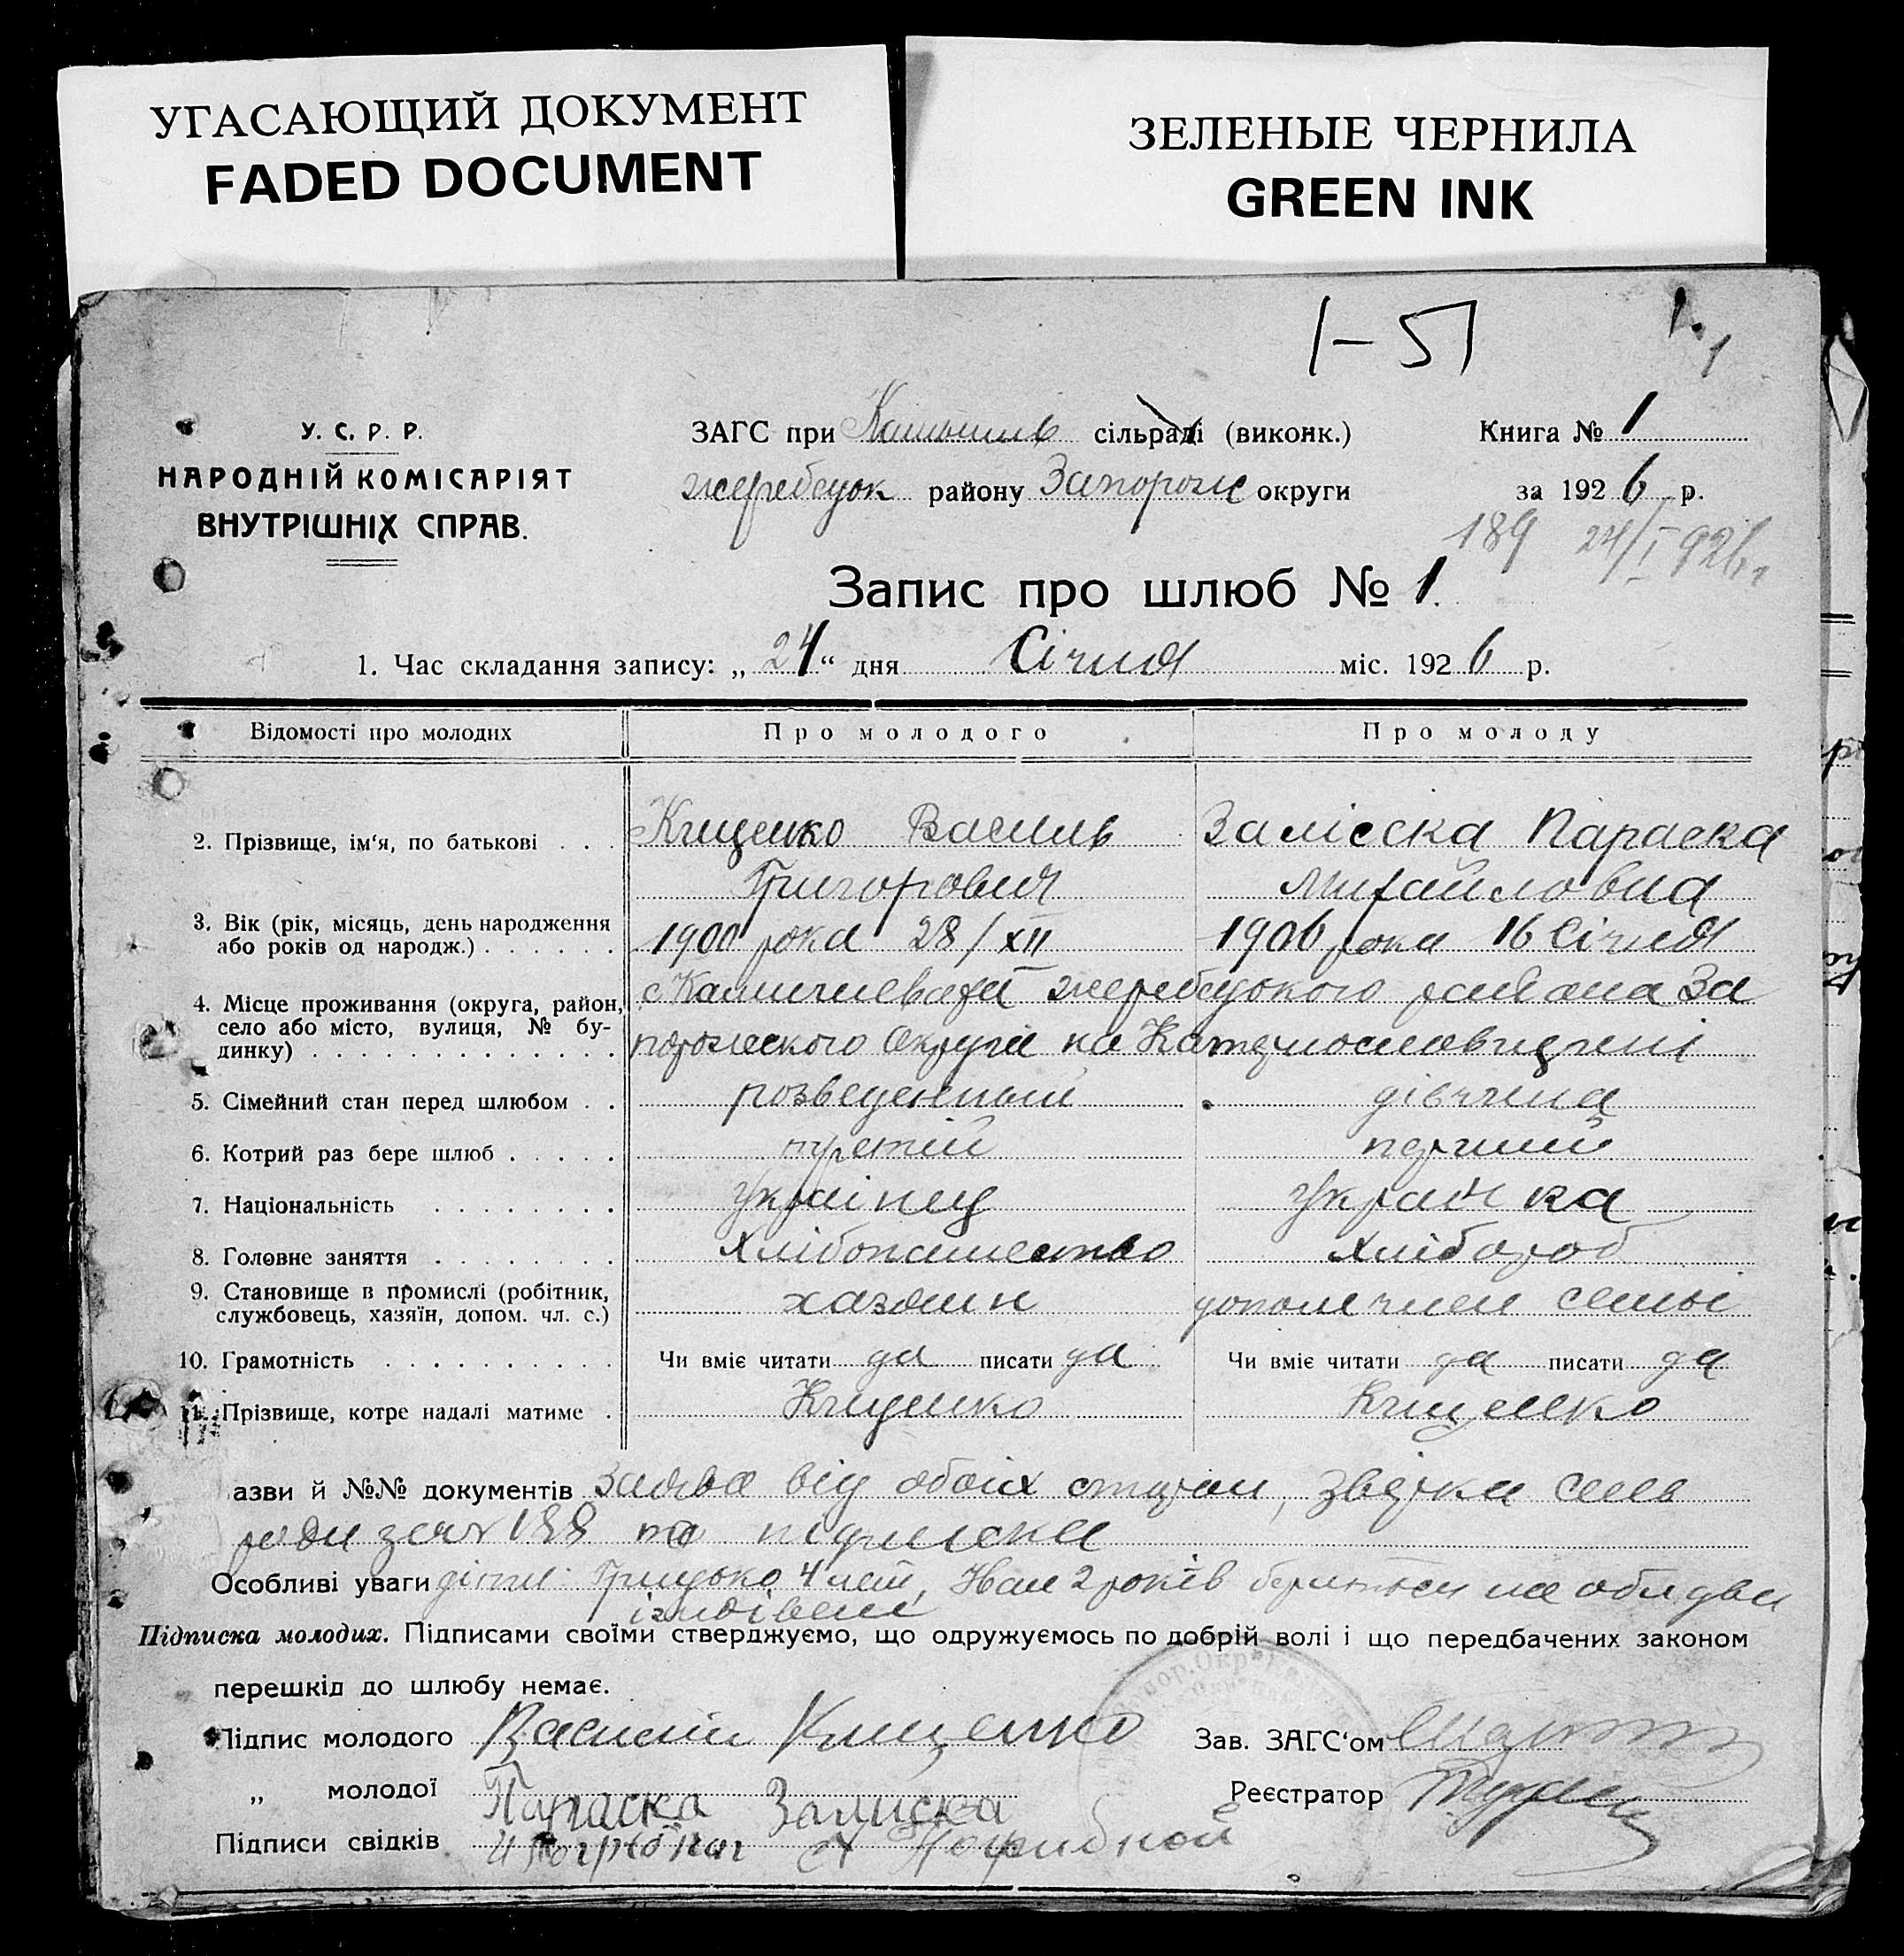 УГАСАЮЩИЙ ДОКУМЕНТ
FADED DOCUMENT
ЗЕЛЕНЫЕ ЧЕРНИЛА
GREEN INK
1-51
1.
1
У. С. Р. Р.
НАРОДНІЙ КОМІСАРІЯТ
ВНУТРІШНІХ СПРАВ.
ЗАГС при сільраді (виконк.)
жеребецьк району Запорож округи
Книга № 1
за 1926 р.
189 24/I 926
Запис про шлюб № 1.
1. Час складання запису: „24“ дня Січня міс. 1926 р.
Відомості про молодих Про молодого Про молоду
2. Прізвище, ім'я, по батькові . . . Кищенко Василь Залісска Параска
Григорович Михайловна
3. Вік (рік, місяць, день народження 1900 рока 28/XII 1906 рока 16 Січня
або років од народж.) . . . . . .
4. Місце проживання (округа, район, с жеребецького района За
село або місто, вулиця, № бу- порожского Округа на
динку) . . . . . . . . . . . . .
5. Сімейний стан перед шлюбом . . розведенный дівчина
6. Котрий раз бере шлюб . . . . . третій перший
7. Національність . . . . . . . . українец українка
8. Головне заняття . . . . . . . . Хлібопашество Хлібороб
9. Становище в промислі (робітник, хазяин семьі
службовець, хазяїн, допом. чл. с.)
10. Грамотність . . . . . . . . . . Чи вміє читати да писати да Чи вміє читати да писати да
11. Прізвище, котре надалі матиме . Кищенко Кищенко
азви й №№ документів Заява від обоіх сторон,
ради за № 188 та підписка
Особливі уваги діти: Грицько 4 лет, 2 років
Підписка молодих. Підписами своїми стверджуємо, що одружуємось по добрій волі і що передбачених законом
перешкід до шлюбу немає.
Підпис молодого Василий Кищенко Зав. ЗАГС'ом
„ молодої Параска Залиска Реєстратор
Підписи свідків